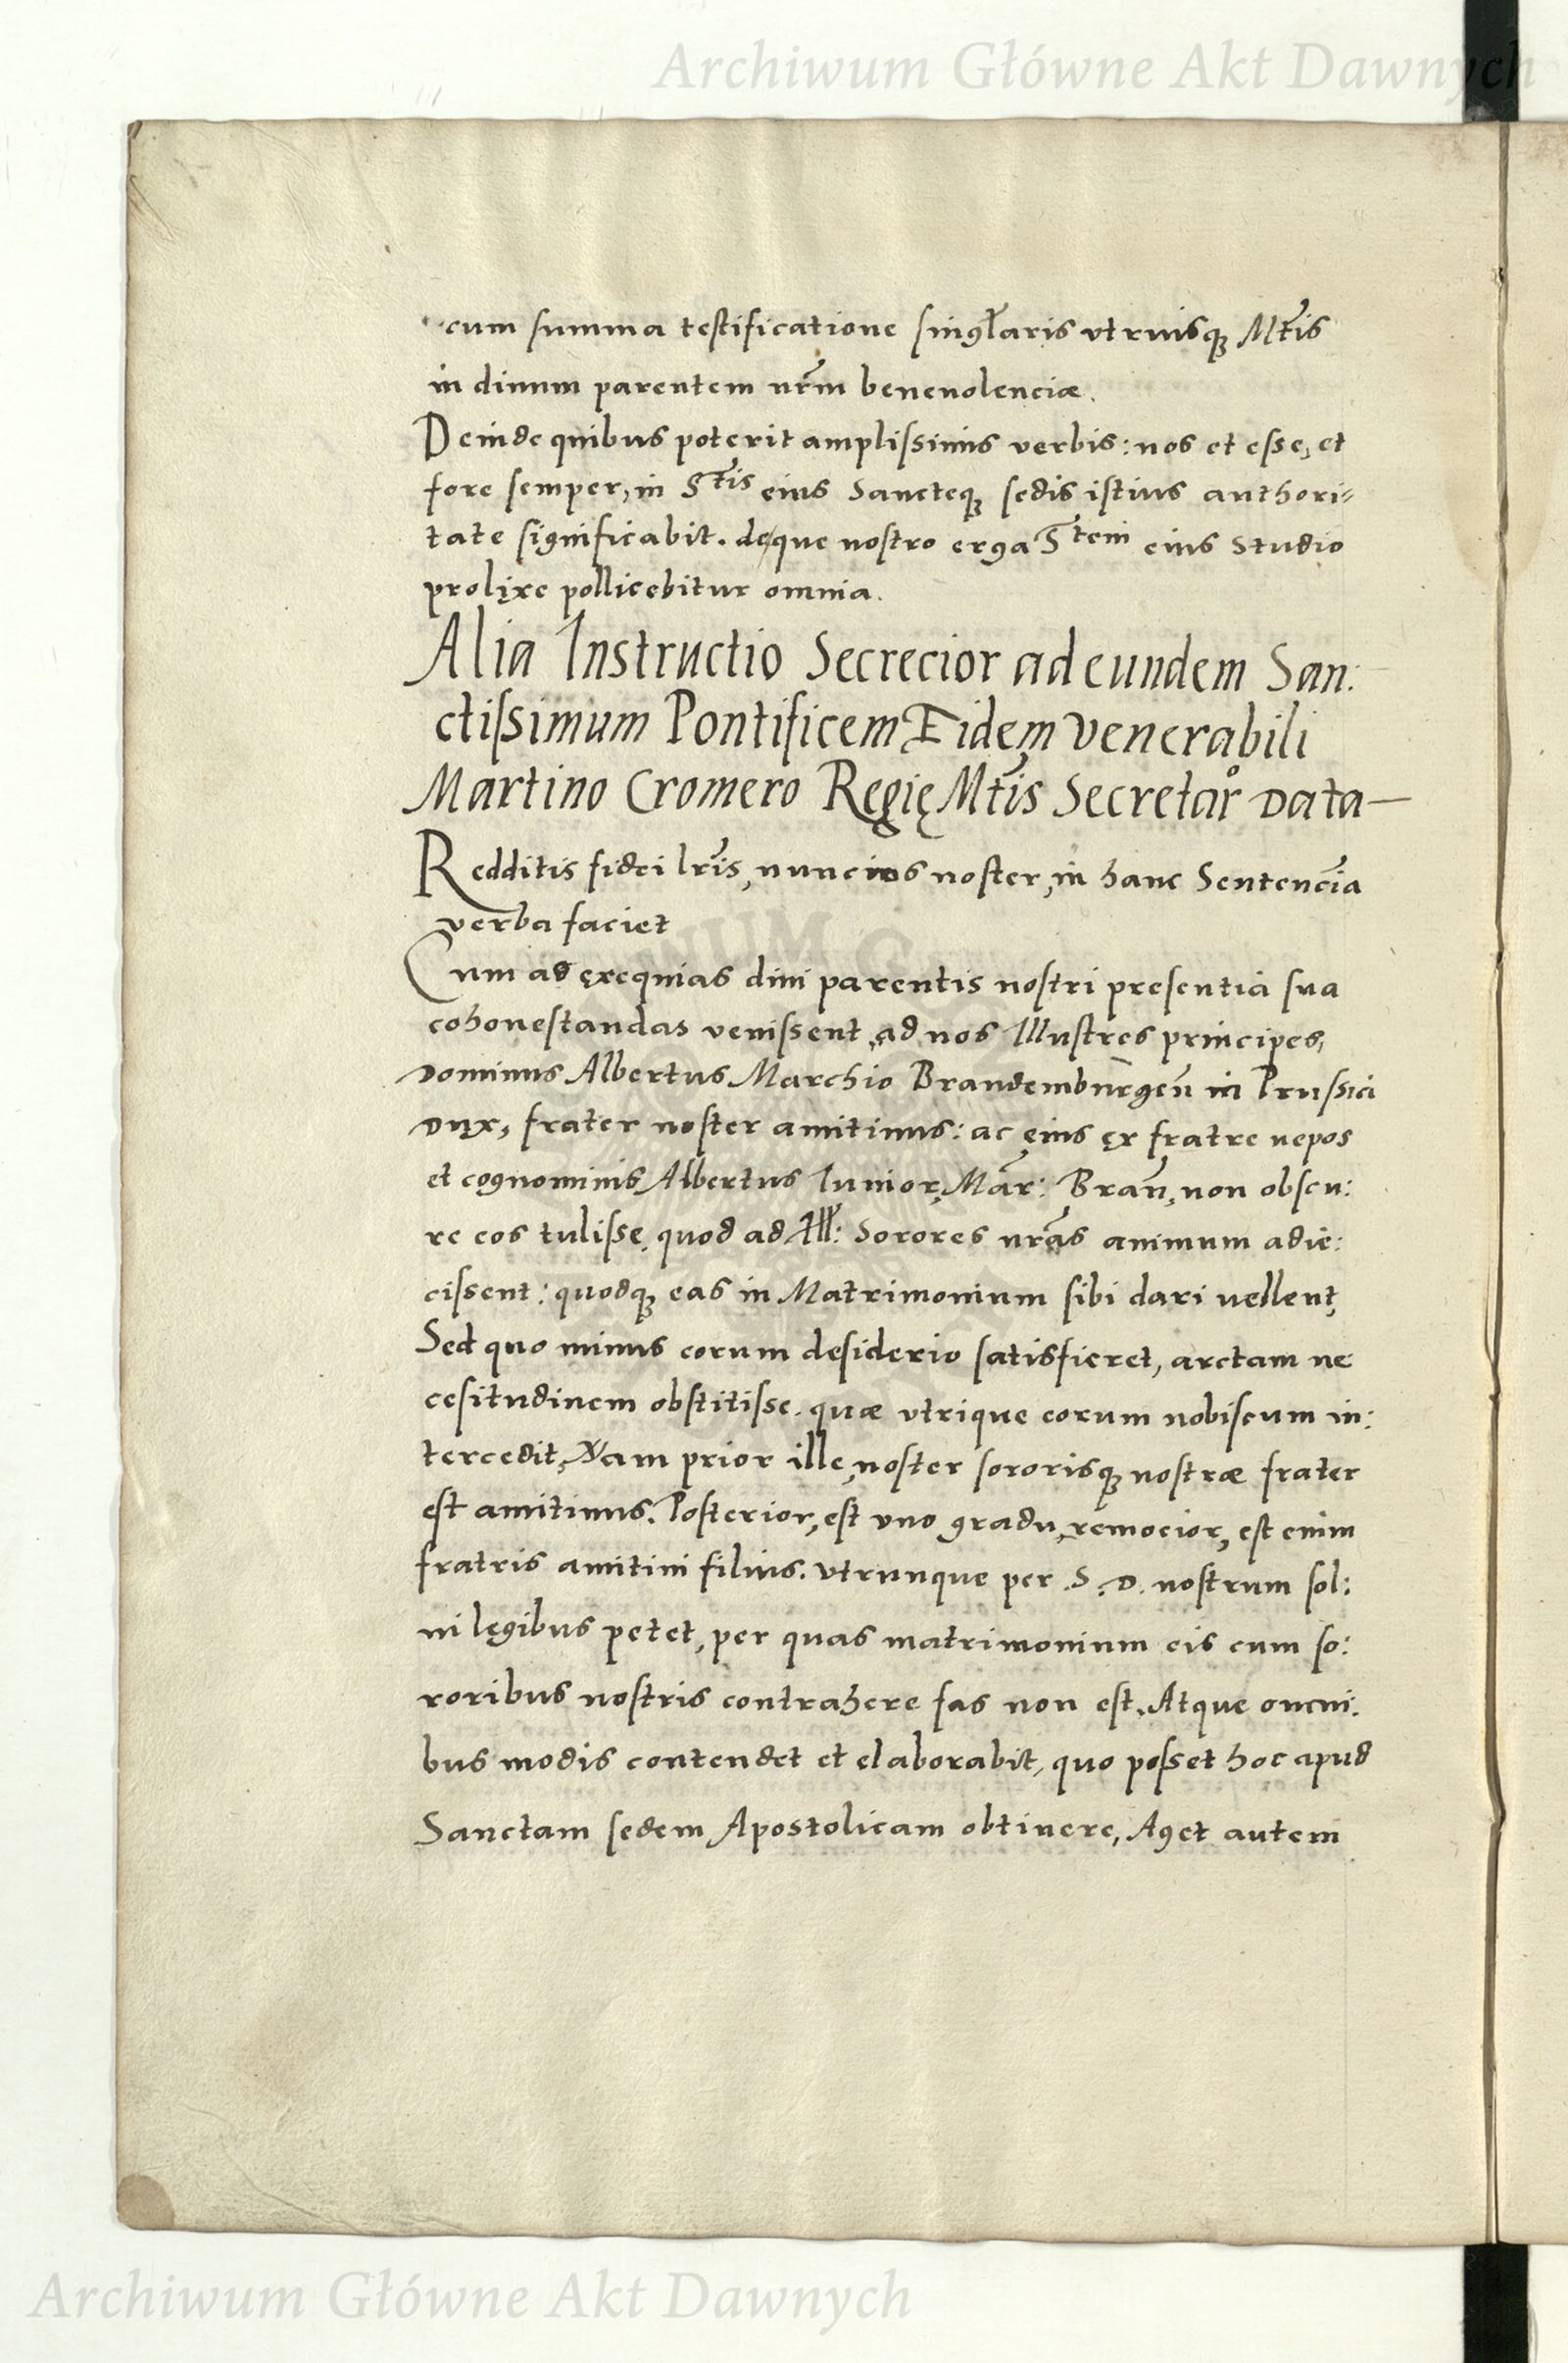 Archiwum Główne Akt Dawnych
cum summa testificatione singl̃aris vtriusqȝ Mt̃is
in diuum parentem nr̃m beneuolenciæ.
Deinde quibus poterit amplissimis verbis: nos et esse, et
fore semper, in Stis eius Sancteqȝ sedis istius authori=
tate significabit. deque nostro erga Stem eius studio
prolixe pollicebitur omnia.
Alia Instructio Secrecior ad eundem San:
ctissimum Pontificem Eidem venerabili
Martino Cromero Regię Mt̃is Secretar° Data—
Redditis fidei lr̃is, nuncius noster, in hanc Sentenciã
verba faciet
Cum ad exequias diui parentis nostri presentia sua
cohonestandas venissent, ad nos Illustres principes,
Dominus Albertus Marchio Brandemburgeñ in Prussia
Dux, frater noster amitinus: ac eius ex fratre nepos
et cognominis Albertus Iunior, Mar̃: Brañ, non obscu:
re eos tulisse, quod ad Ill: Sorores nr̃as animum adie:
cissent: quodqȝ eas in Matrimonium sibi dari uellent,
Sed quo minus eorum desiderio satisfieret, arctam ne
cesitudinem obstitisse. quæ vtrique eorum nobiscum in:
tercedit, Nam prior ille, noster sororisqȝ nostræ frater
est amitinus. Posterior, est vno gradu, remocior, est enim
fratris amitini filius. vtrunque per .S. D. nostrum sol:
ui legibus petet, per quas matrimonium eis cum so:
roribus nostris contrahere fas non est. Atque omni.
bus modis contendet et elaborabit, quo posset hoc apud
Sanctam sedem Apostolicam obtinere, Aget autem
Archiwum Główne Akt Dawnych